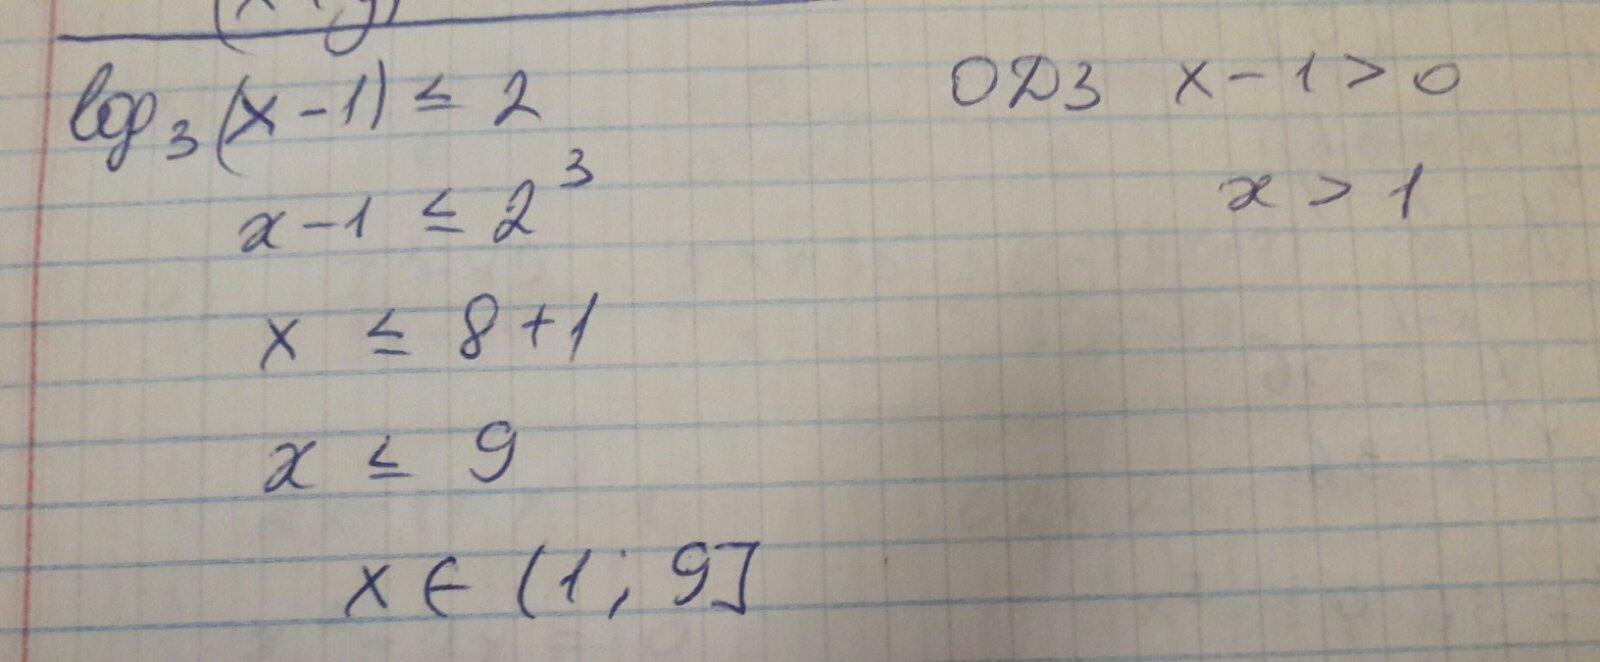 log₃(x-1) ≤ 2
ОДЗ x-1>0
x-1 ≤ 2³
x > 1
x ≤ 8+1
x ≤ 9
x ∈ (1; 9]